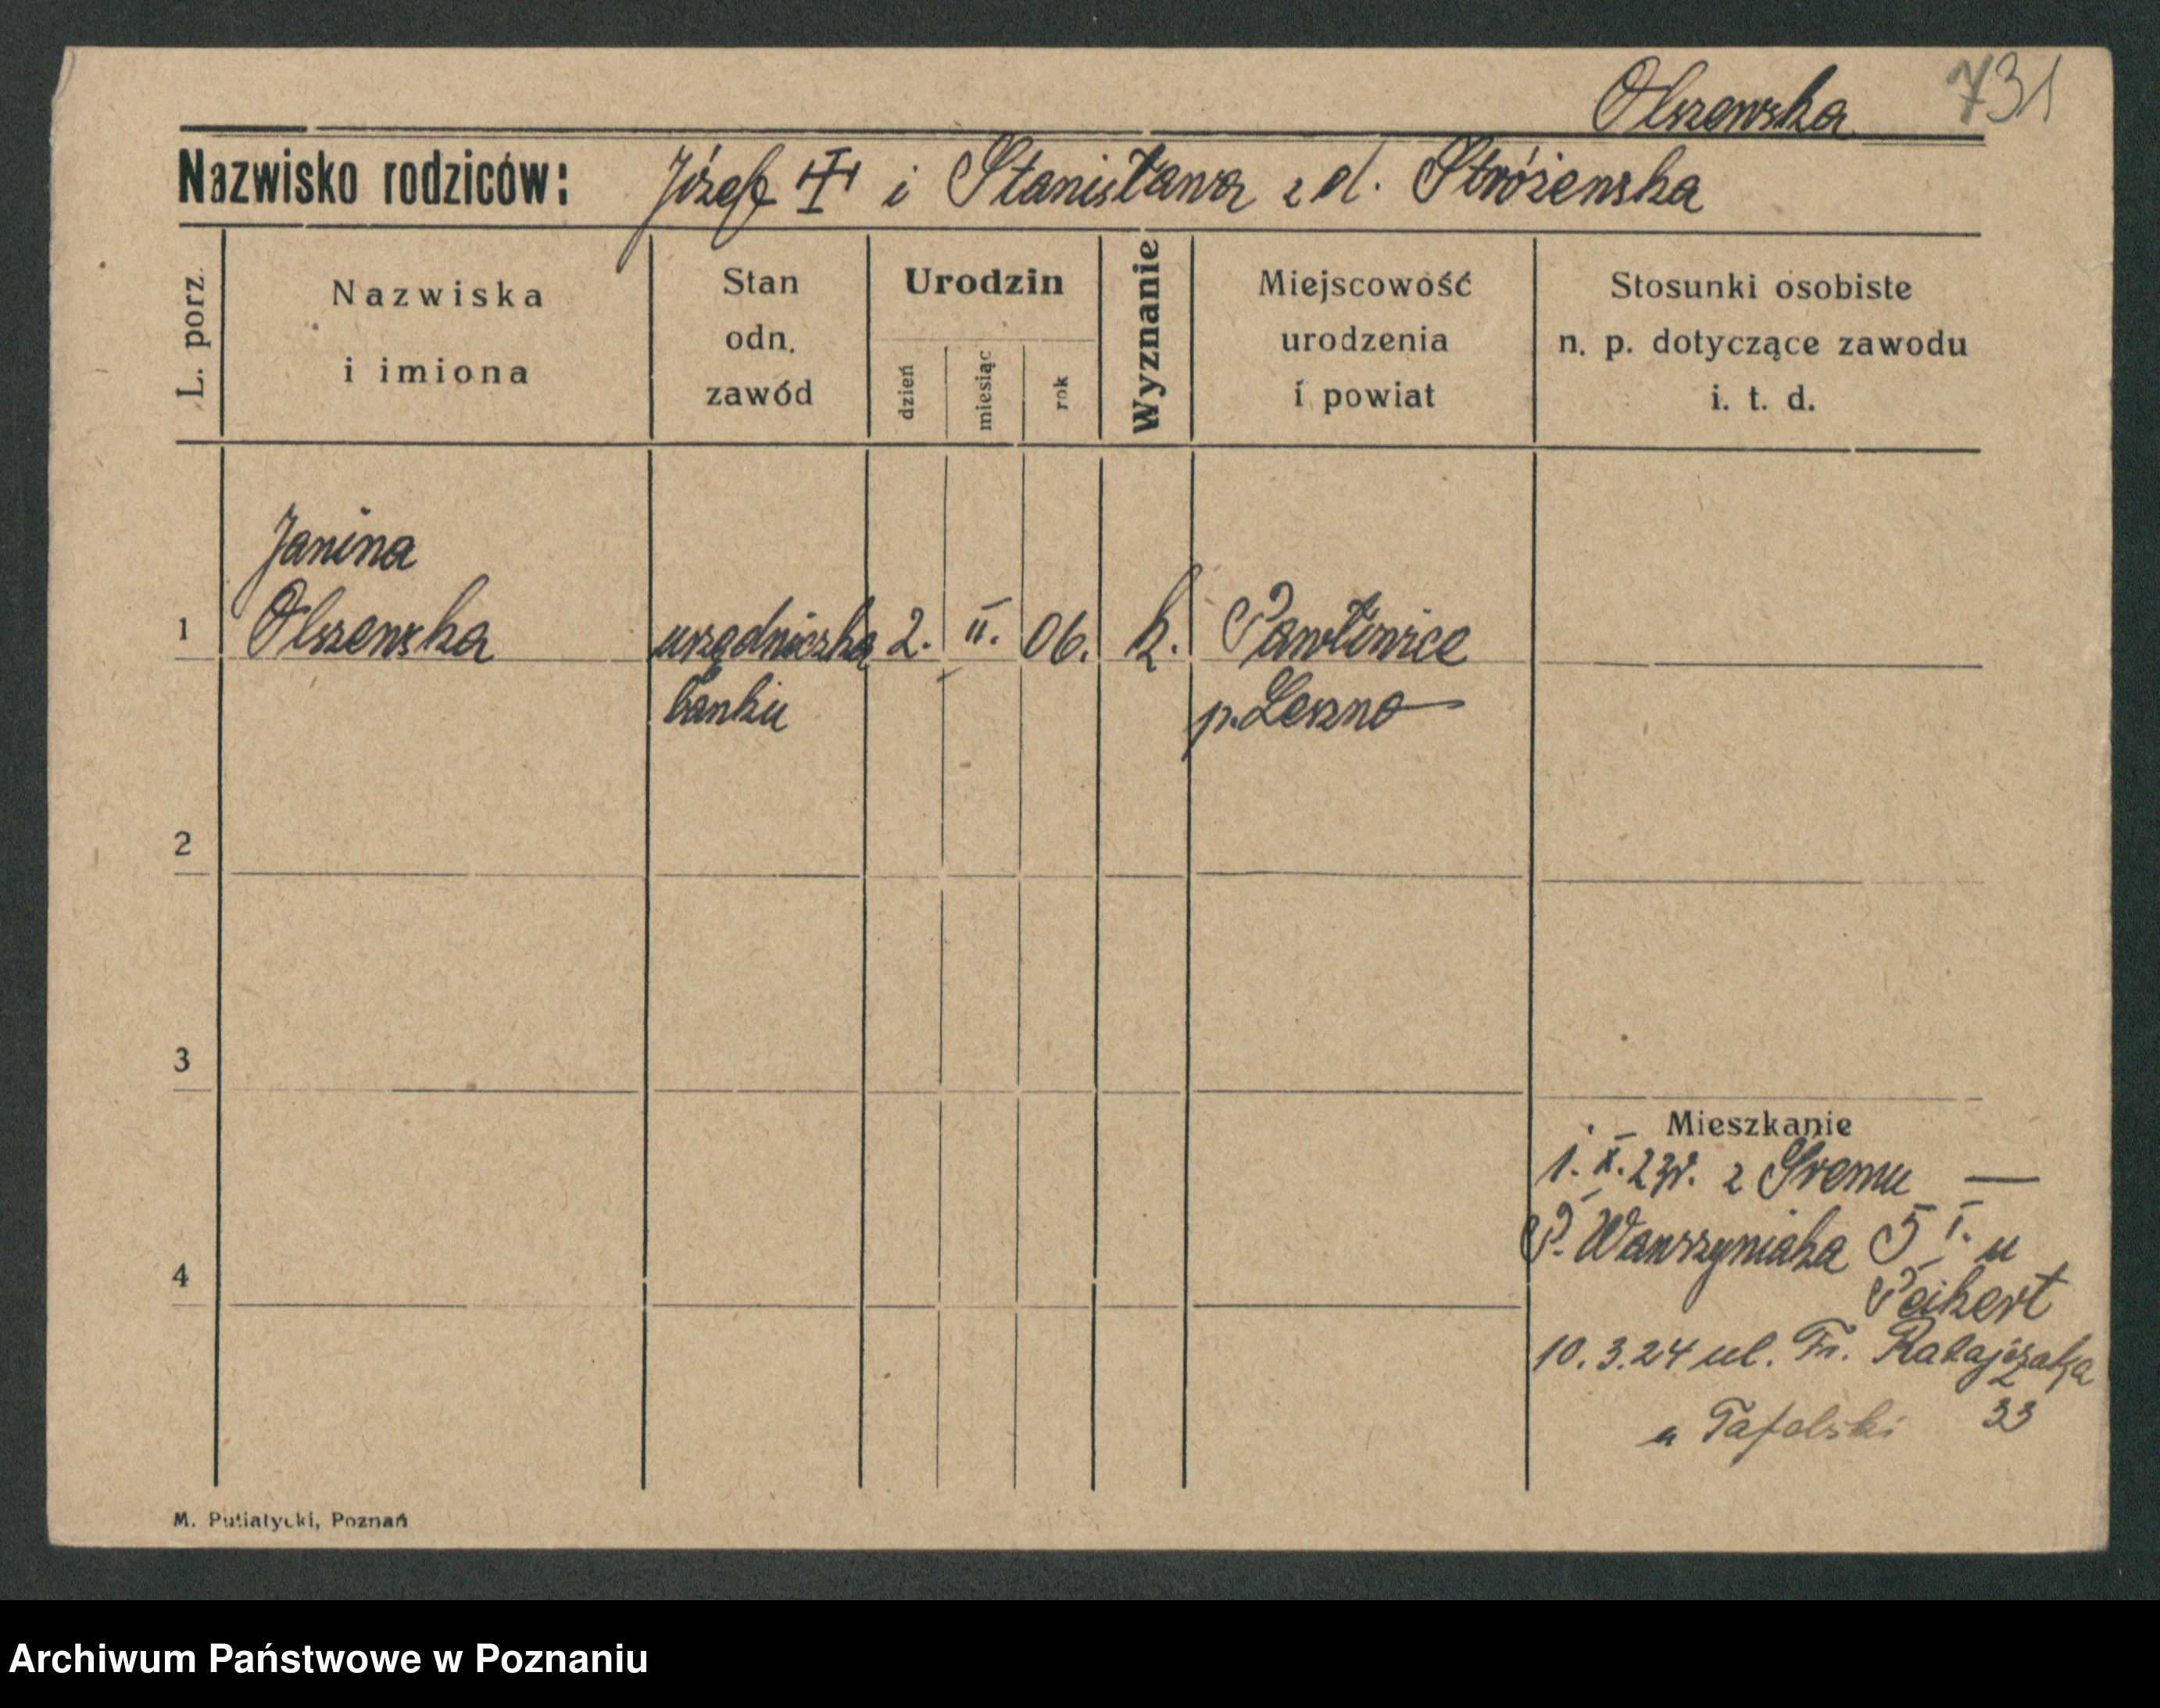 Olszewska 731
Nazwisko rodziców: Józef i Stanisława z d. Stróżewska
L. porz.
Nazwiska
i imiona
Stan
odn.
zawód
Urodzin
dzień
miesiąc
rok
Wyznanie
Miejscowość
urodzenia
i powiat
Stosunki osobiste
n. p. dotyczące zawodu
i. t. d.
Janina
1 Olszewska urzędniczka 2. II. 06. k. Pawłowice
banku p. Leszno
2
3
Mieszkanie
1. X. 23r. z Śremu —
P. Wawrzyniaka 5 I. u
4
Peikert
10. 3. 24 ul. Fr. Ratajczaka
u 33
M. Putiatycki, Poznań
Archiwum Państwowe w Poznaniu